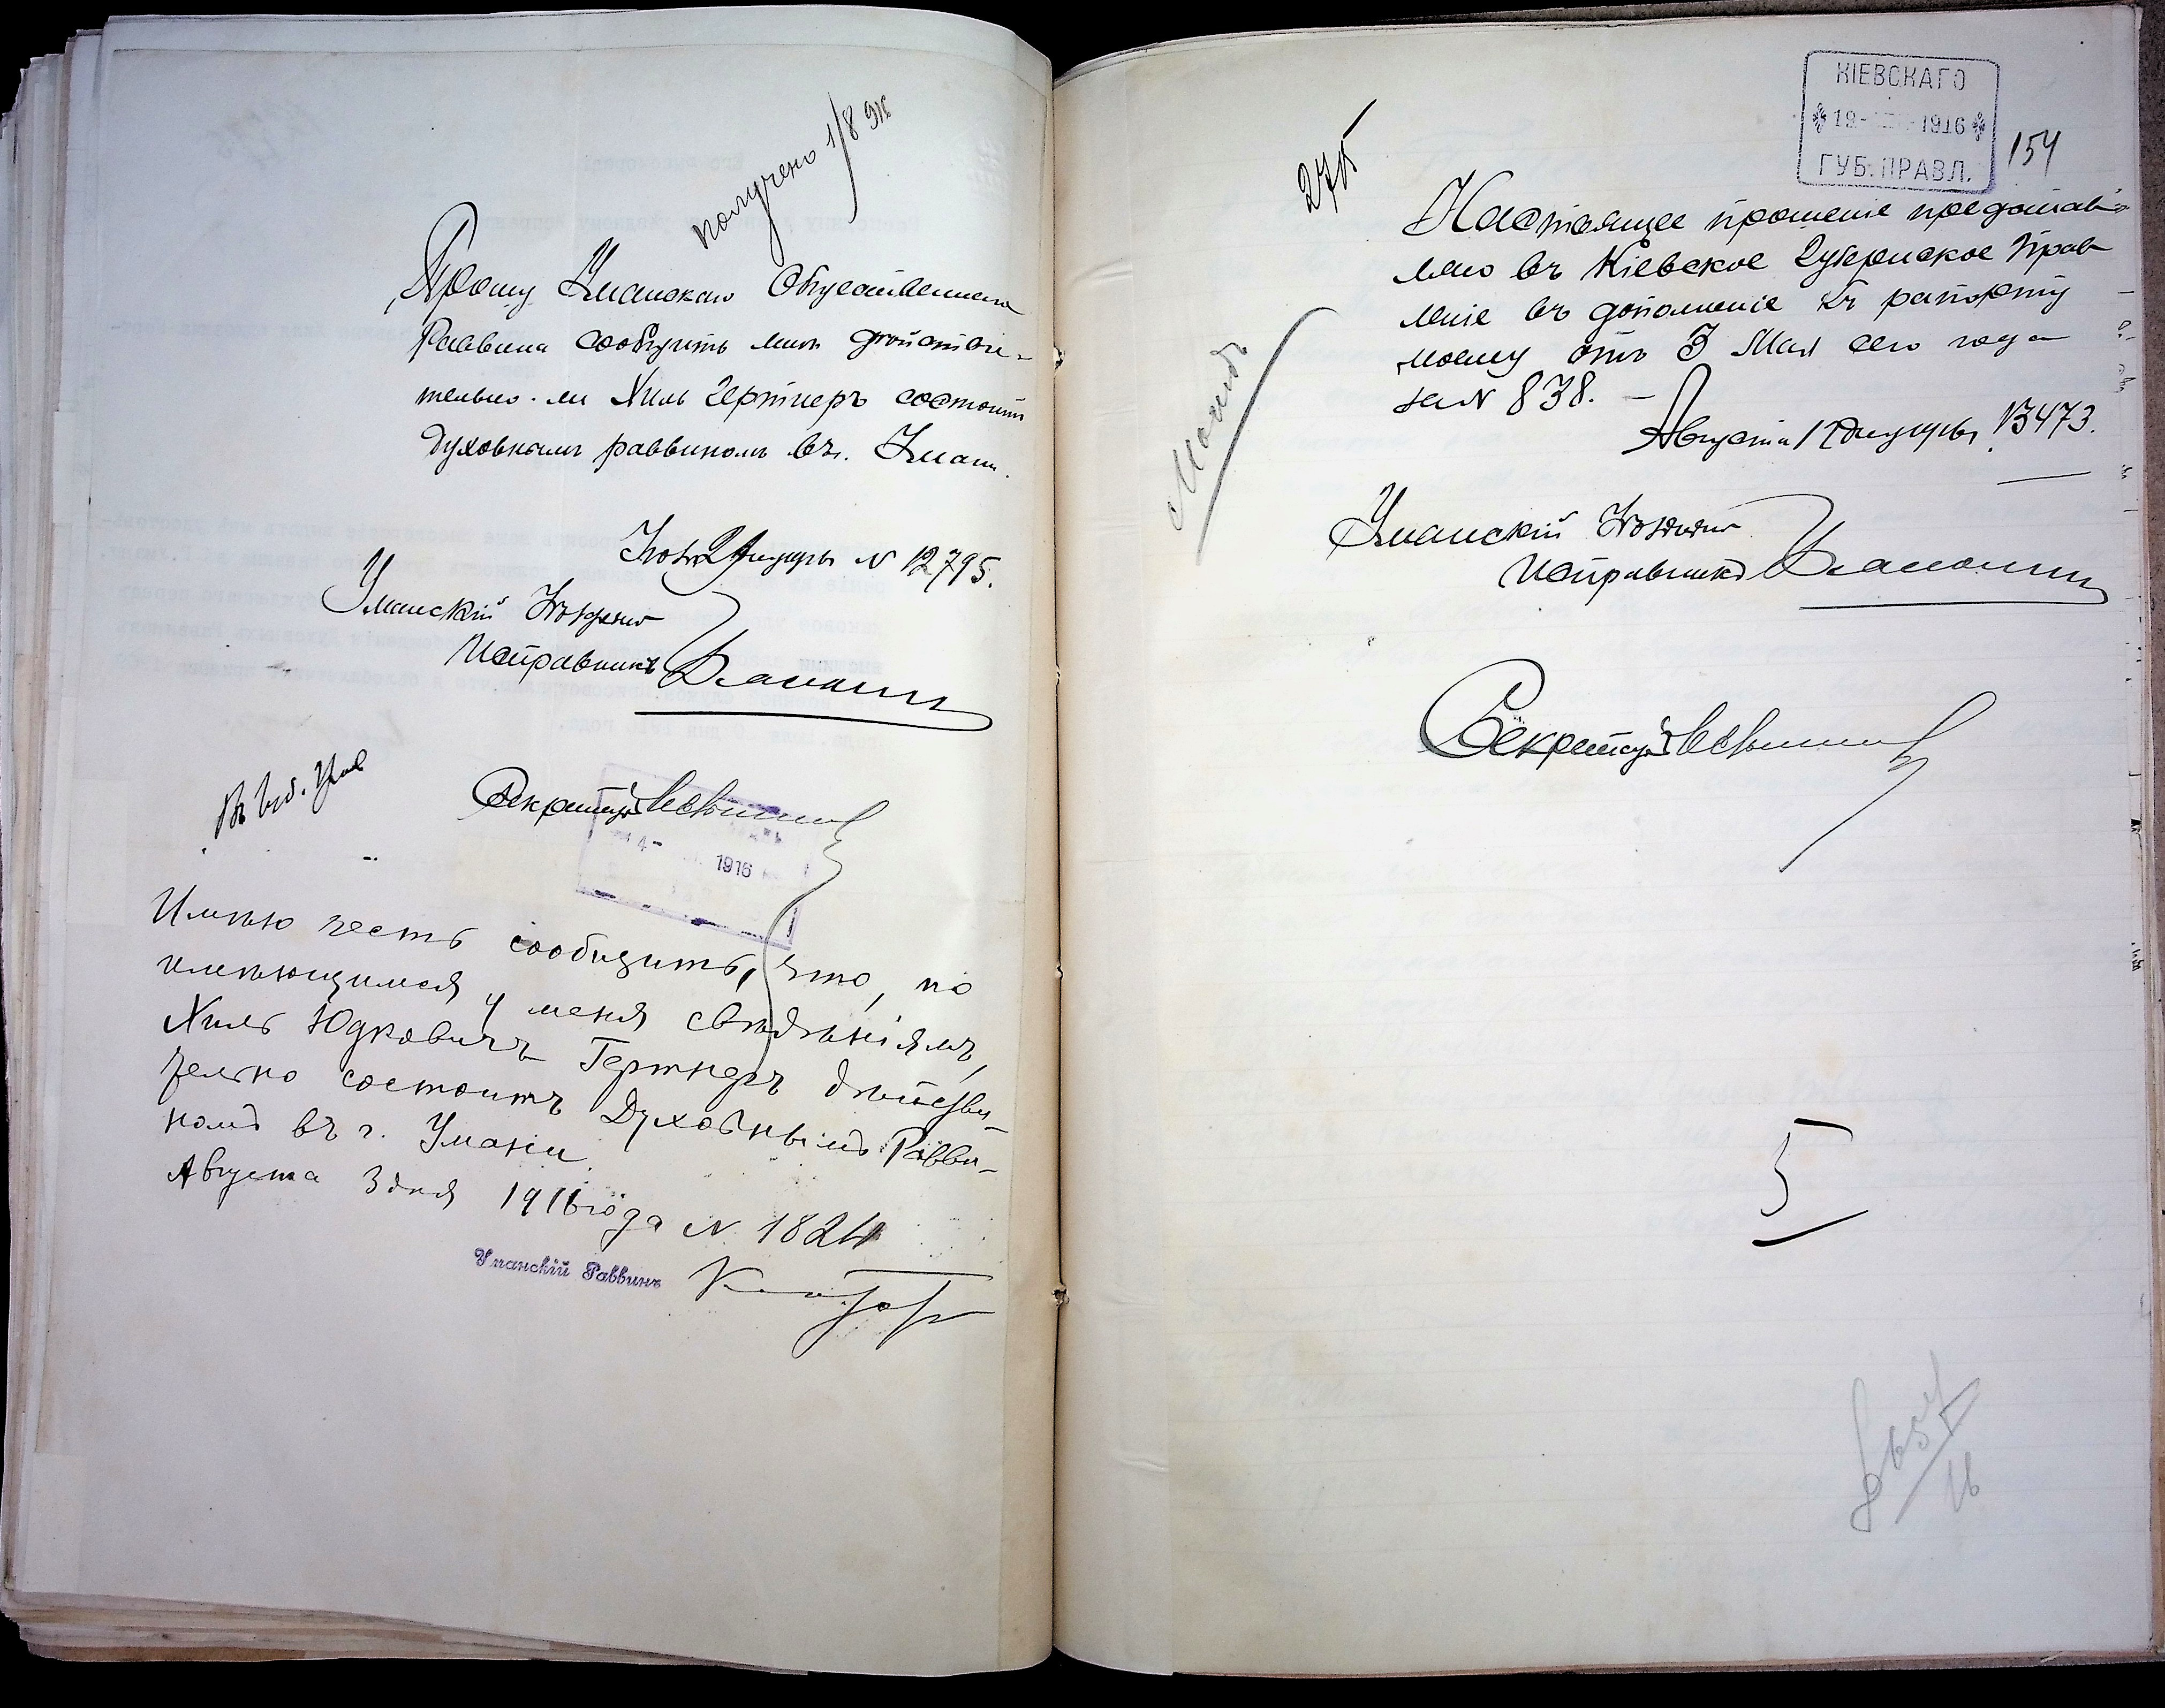 получено 1/8
Прошу Уманскаго Общественнаго
Раввина сообщить мнѣ дѣйстви-
тельно-ли Хиль Гертнеръ состоитъ
духовнымъ раввиномъ въ г. Умани.
дня 1916 г. № 12795.
Уманскій Уѣздный
Исправникъ
Секретарь
1916
Имѣю честь сообщить, что, по
имѣющимся у меня свѣдѣніямъ,
Хиль Юдковичъ Гертнеръ дѣйстви-
тельно состоитъ Духовнымъ Равви-
номъ въ г. Умани.
Августа 3 дня 1916 года № 1824
Уманскій Раввинъ
КІЕВСКАГО
1916
ГУБ. ПРАВЛ.
154
275
Настоящее прошеніе представ-
ляю въ Кіевское Губернское Прав
леніе въ дополненіе къ рапорту
моему отъ 3 Мая сего года
за № 838. —
Августа 1916 г. № 13473.
Уманскій Уѣздный
Исправникъ
Секретарь
5